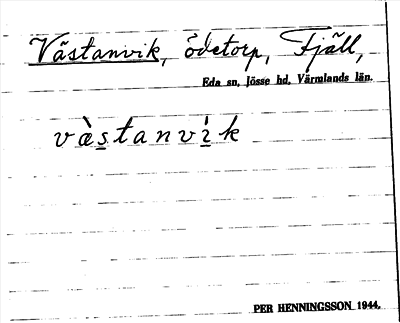 Västanvik, Ödetorp, Fjäll,
Eda sn, Jösse hd, Värmlands län.
væ̀stanvík
PER HENNINGSSON 1944.